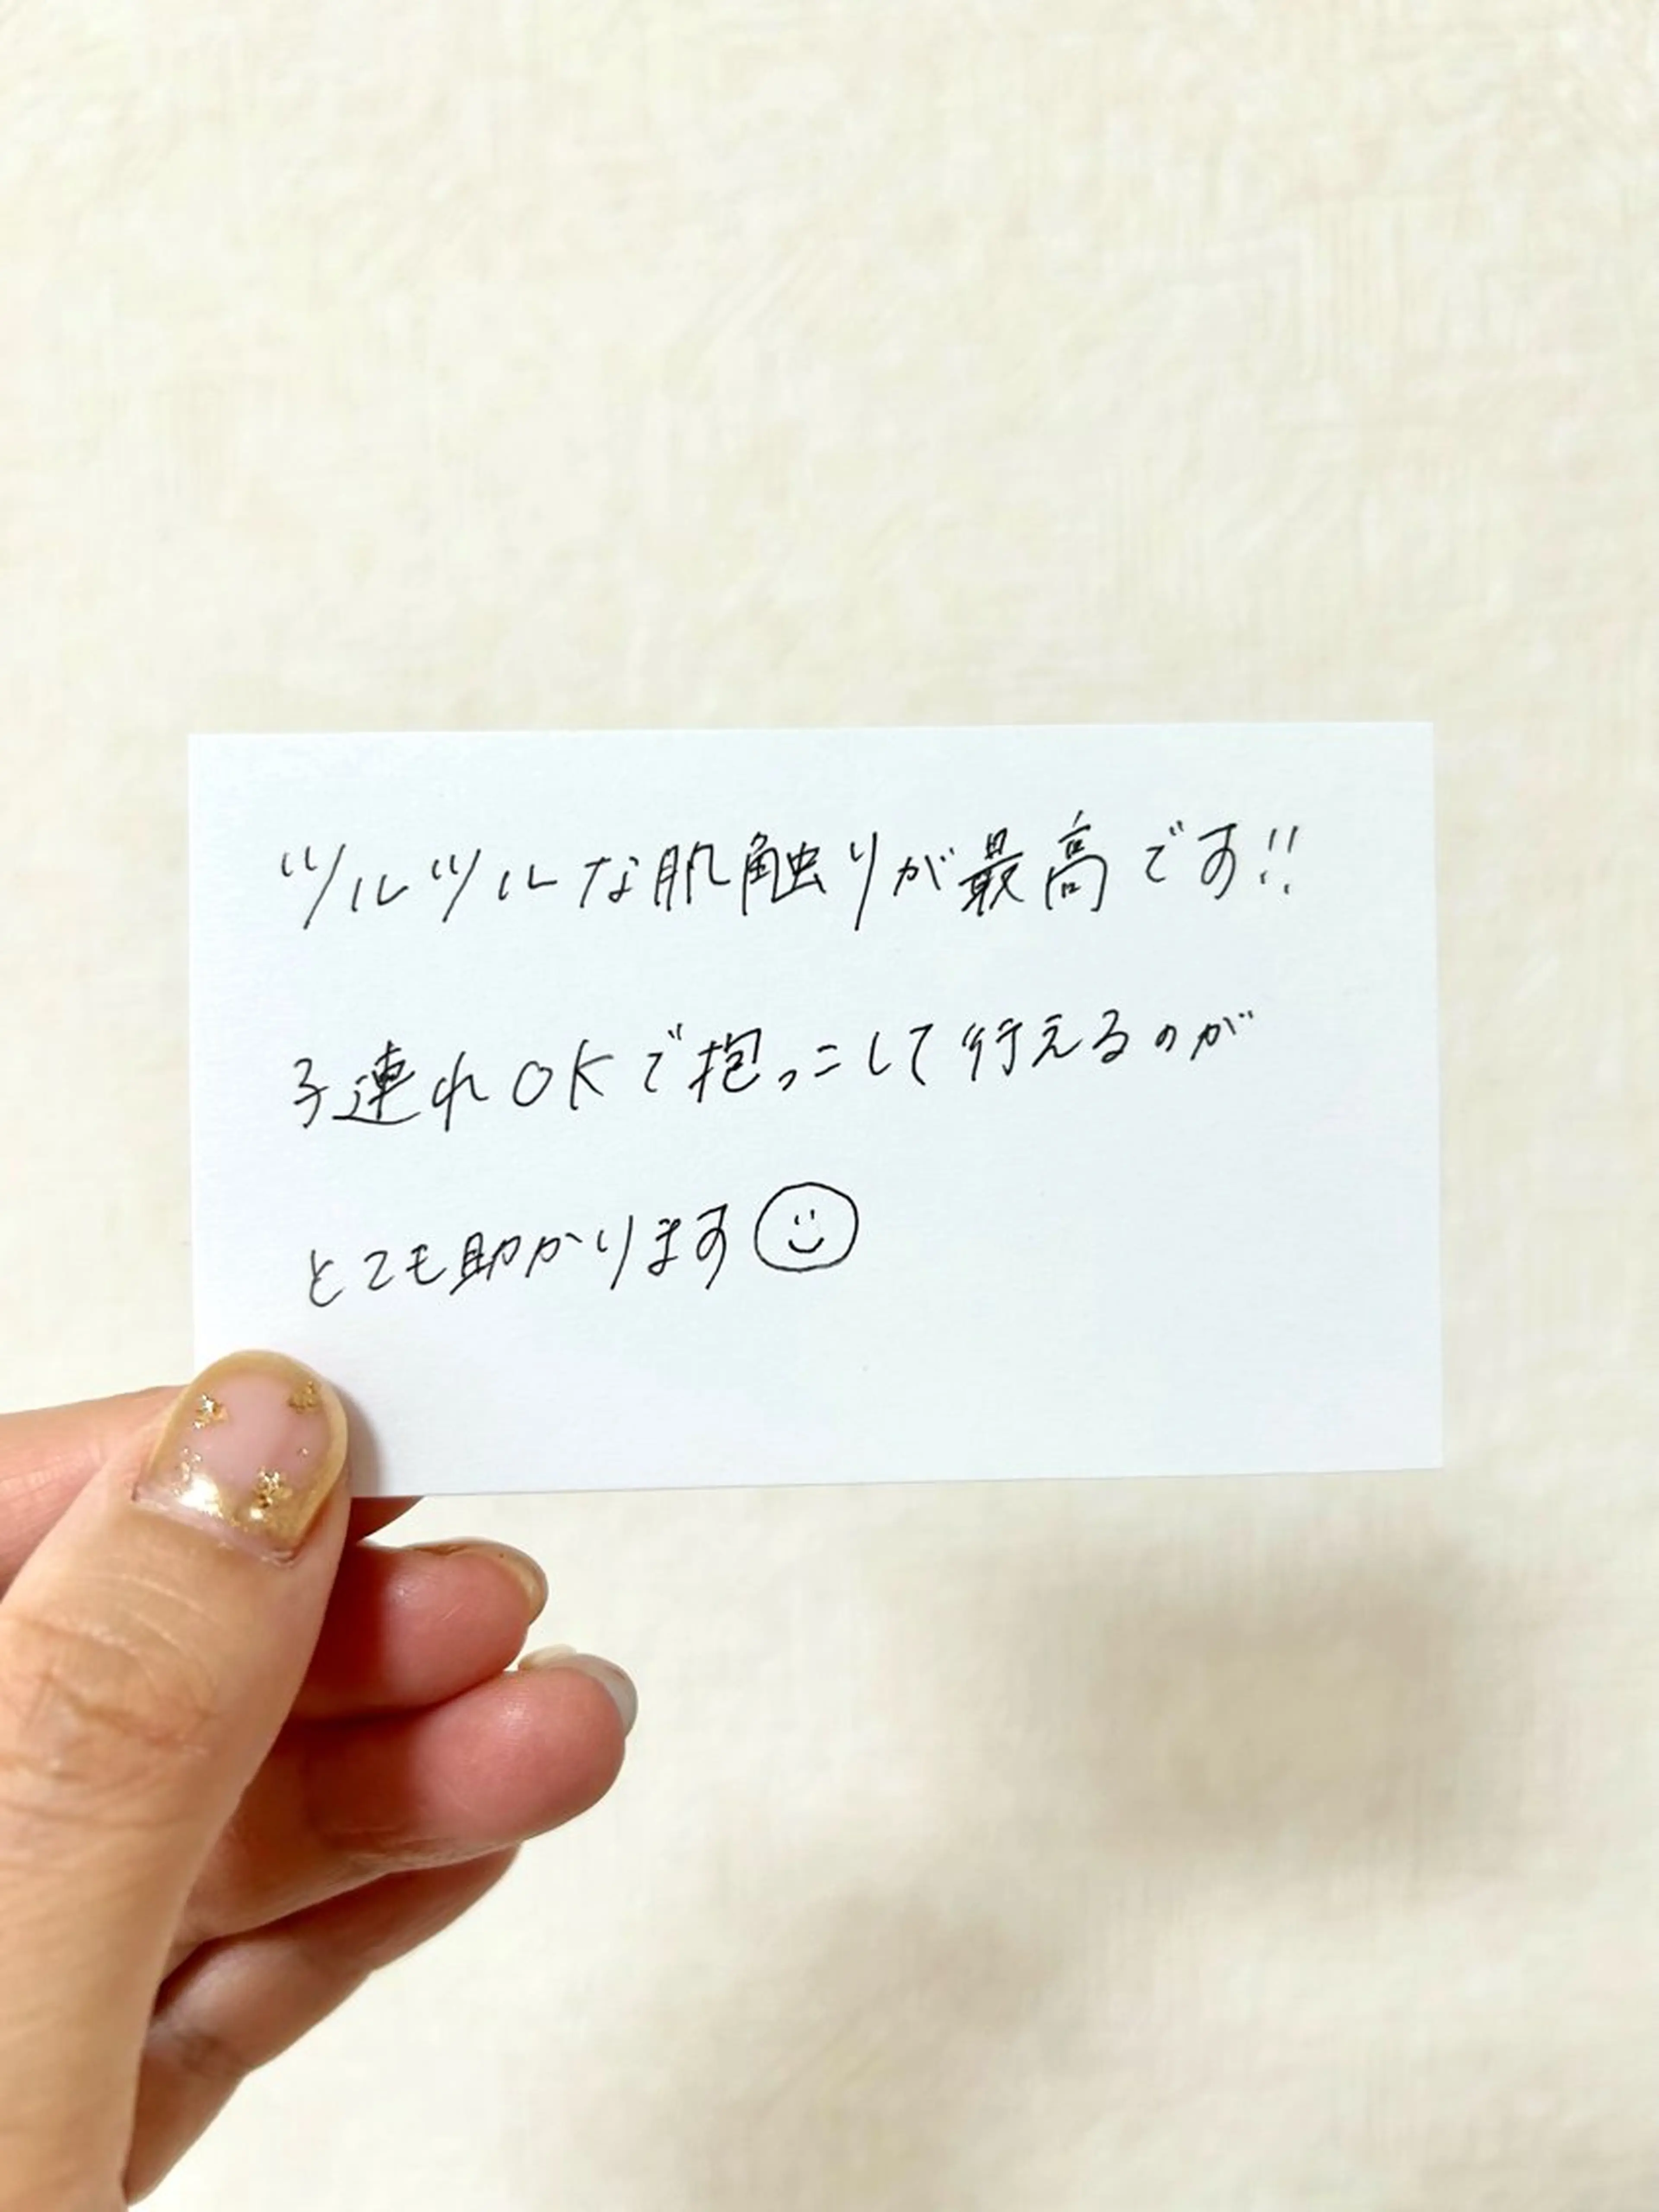 ツルツルな肌触りが最高です!!
子連れOKで抱っこして行えるのが
とても助かります